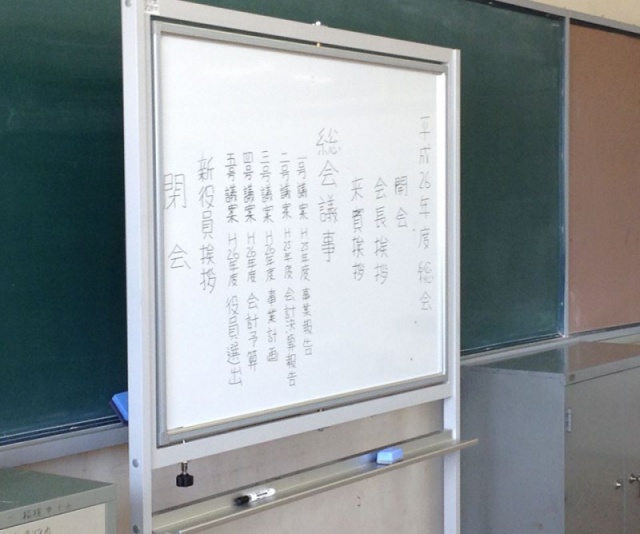 平成26年度 総会
開会
会長挨拶
来賓挨拶
総会議事
一号議案 H25年度 事業報告
二号議案 H25年度 会計決算報告
三号議案 H26年度 事業計画
四号議案 H26年度 会計予算
五号議案 H26年度 役員選出
新役員挨拶
閉会